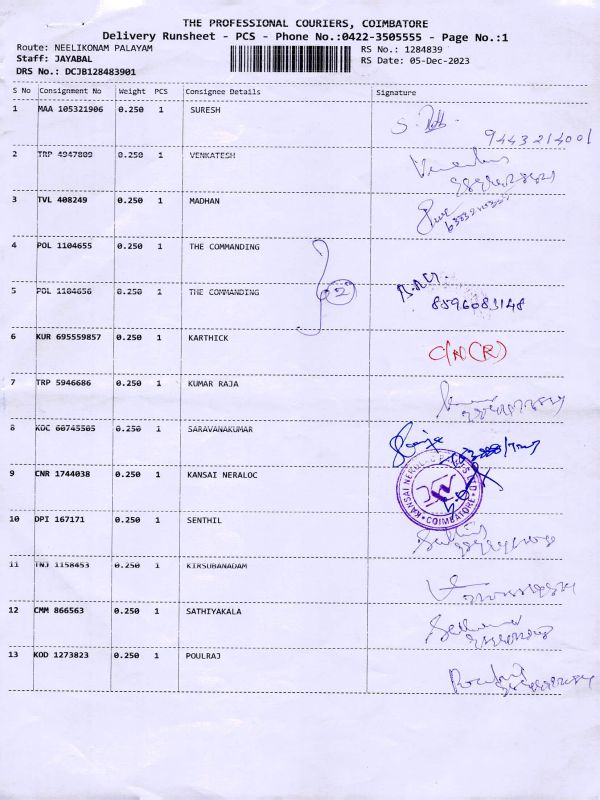 THE PROFESSIONAL COURIERS, COIMBATORE
Delivery Runsheet - PCS - Phone No.:0422-3505555 - Page No.:1
Route: NEELIKONAM PALAYAM
RS No.: 1284839
Staff: JAYABAL
RS Date: 05-Dec-2023
DRS No.: DCJB128483901
S No Consignment No Weight PCS Consignee Details Signature
1 MAA 105321906 0.250 1 SURESH
9443214001
2 TRP 4947809 0.250 1 VENKATESH
3 TVL 408249 0.250 1 MADHAN
4 POL 1104655 0.250 1 THE COMMANDING
5 POL 1104656 0.250 1 THE COMMANDING 2
8596083148
6 KUR 695559857 0.250 1 KARTHICK C/N(R)
7 TRP 5946686 0.250 1 KUMAR RAJA
8 KDC 60745505 0.250 1 SARAVANAKUMAR
9 CNR 1744038 0.250 1 KANSAI NERALOC
KANSAI NEROLAC COIMBATORE
10 DPI 167171 0.250 1 SENTHIL
11 TNJ 1158453 0.250 1 KIRSUBANADAM
12 CMM 866563 0.250 1 SATHIYAKALA
13 KOD 1273823 0.250 1 POULRAJ